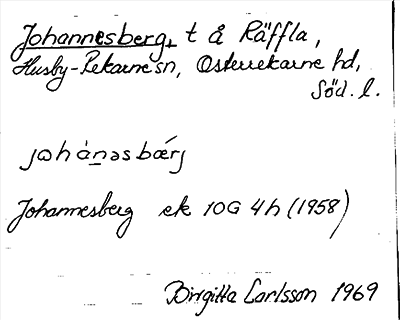 Johannesberg, t å Räffla,
Husby-Rekarne sn, Österrekarne hd,
Söd. l.
johànəsbærj
Johannesberg ek 10G 4h (1958)
Birgitta Carlsson 1969